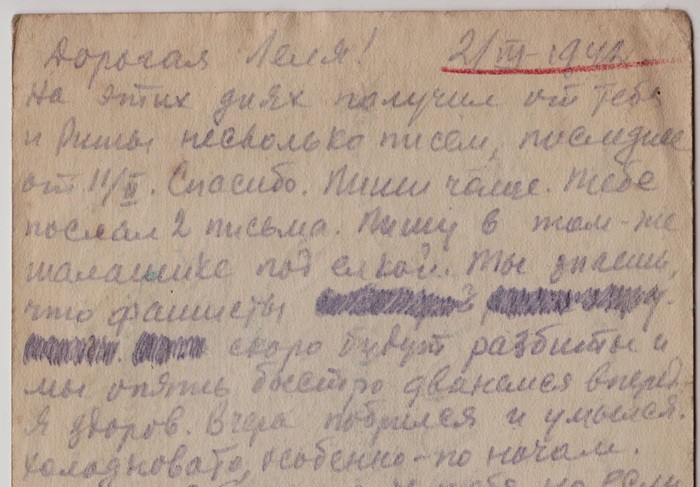 Дорогая Леля! 2/III-1942
На этих днях получил от тебя
и Риты несколько писем, последнее
от 11/II. Спасибо. Пиши чаще. Тебе
послал 2 письма. Пишу в том-же
шалашике под елкой. Ты знаешь,
что фашисты
скоро будут разбиты и
мы опять быстро двинемся вперед.
Я здоров. Вчера побрился и умылся.
Холодновато, особенно-по ночам.